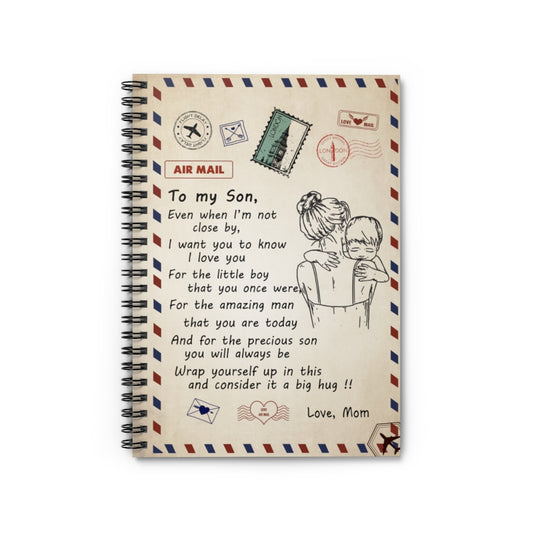 LONDON
LOVE MAIL
LONDON
AIR MAIL
To my Son,
Even when I'm not
close by,
I want you to know
I love you
For the little boy
that you once were,
For the amazing man
that you are today
And for the precious son
you will always be
Wrap yourself up in this
and consider it a big hug !!
Love, Mom